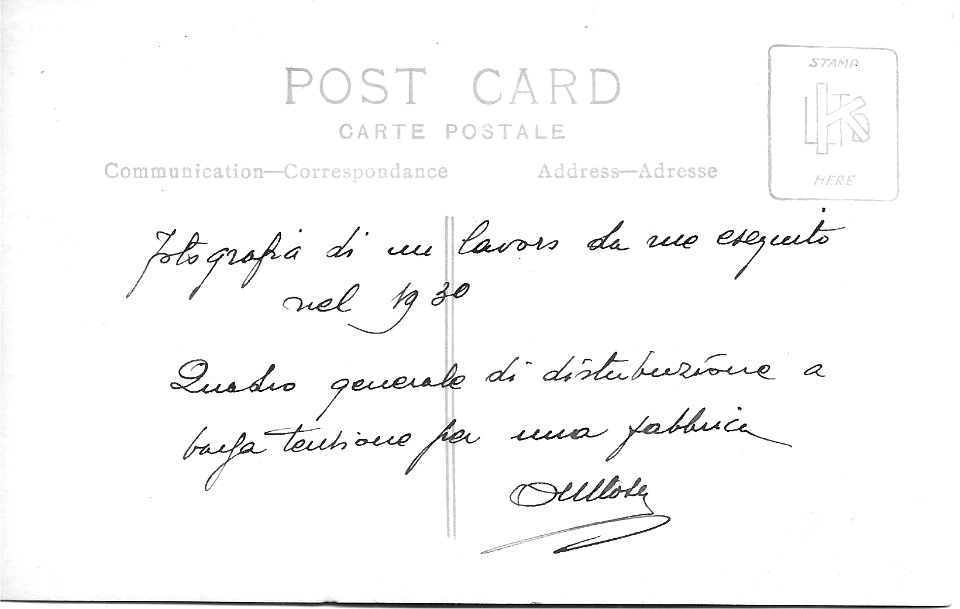 POST CARD
CARTE POSTALE
Communication—Correspondance
Address—Adresse
STAMP
HERE
Fotografia di un lavoro da me eseguito
nel 1930
Quadro generale di distribuzione a
bassa tensione per una fabbrica